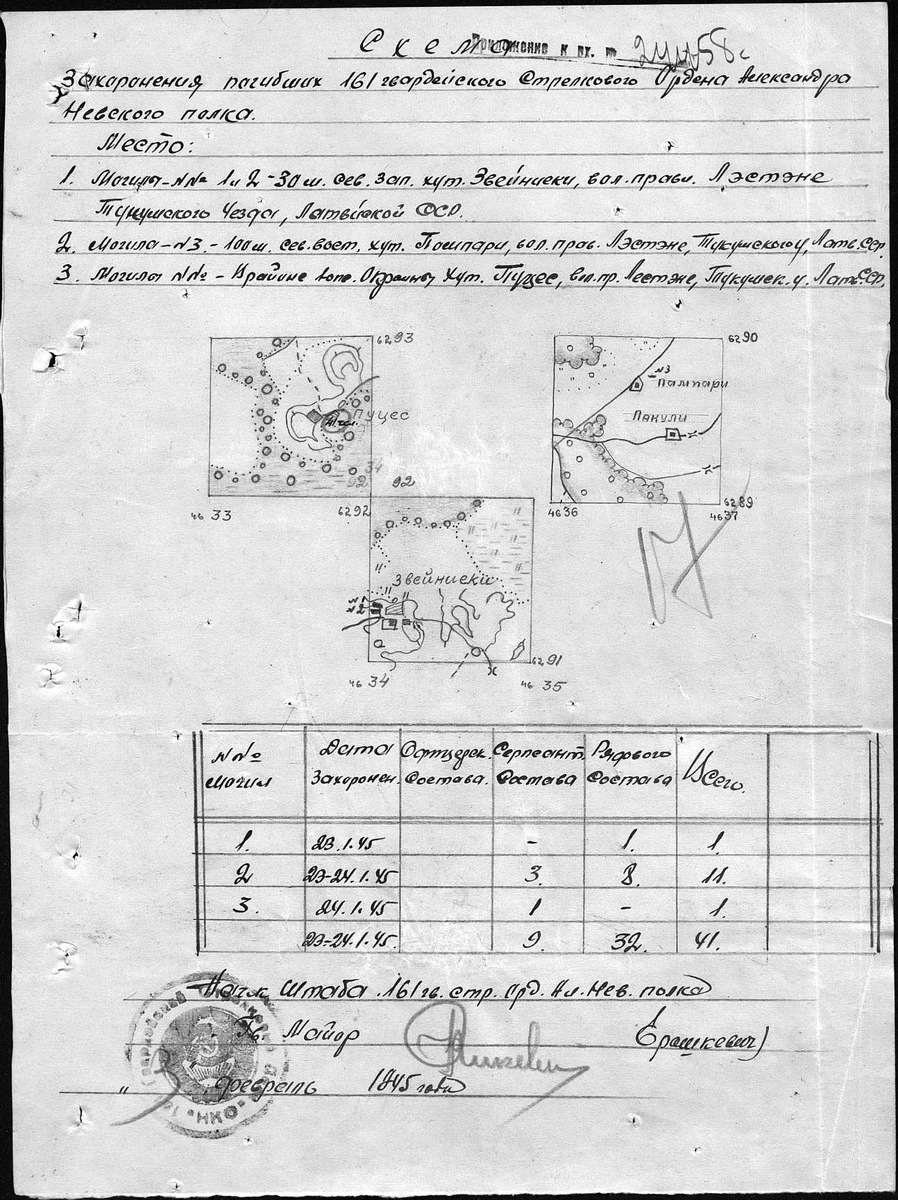 Схема
Приложение к вх. №
Захоронения погибших 161 гвардейского Стрелкового Ордена Александра
Невского полка.
Место:
1. Могила-№№ 1 и 2 - 30 м. сев. зап. хут. Звейниеки, вол. правл. Лэстэне
Тукумского Уезда, Латвийской ССР.
2. Могила-№3.-100 м. сев. вост. хут. Пампари, вол. прав. Лэстэне, Тукумского у, Латв. ССР.
3. Могила №№ - Крайние Окраины хут. Пуцес, вол. пр. Лестэне, Тукумск. у. Латв. ССР,
6293
6290
№3
Пампари
Пуцес
Пакули
34
92
92
4633
6292
4636
6289
4637
Звейниеки
№1
№2
6291
4634
4635
17
№№ могил
Дата Захоронен.
Офицерск. Состава.
Сержант. Состава
Рядового Состава
Всего.
1. 23.1.45 - 1. 1.
2 23-24.1.45 3. 8. 11.
3. 24.1.45 1 - 1.
23-24.1.45. 9. 32. 41.
Нач-к Штаба 161 гв. стр. Орд. Ал. Нев. полка
Гв. Майор Ерашкевич)
" " февраль 1945 года
НКО